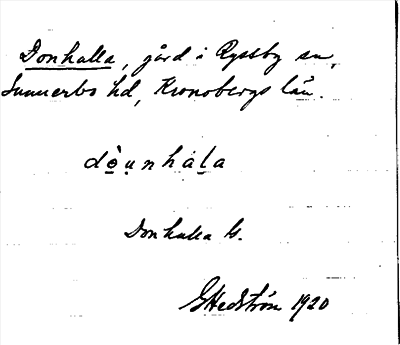 Donhalla, gård i Ryssby sn,
Sunnerbo hd, Kronobergs län.
dò̤ụnháḻa
Donhalla G.
GHedström 1920